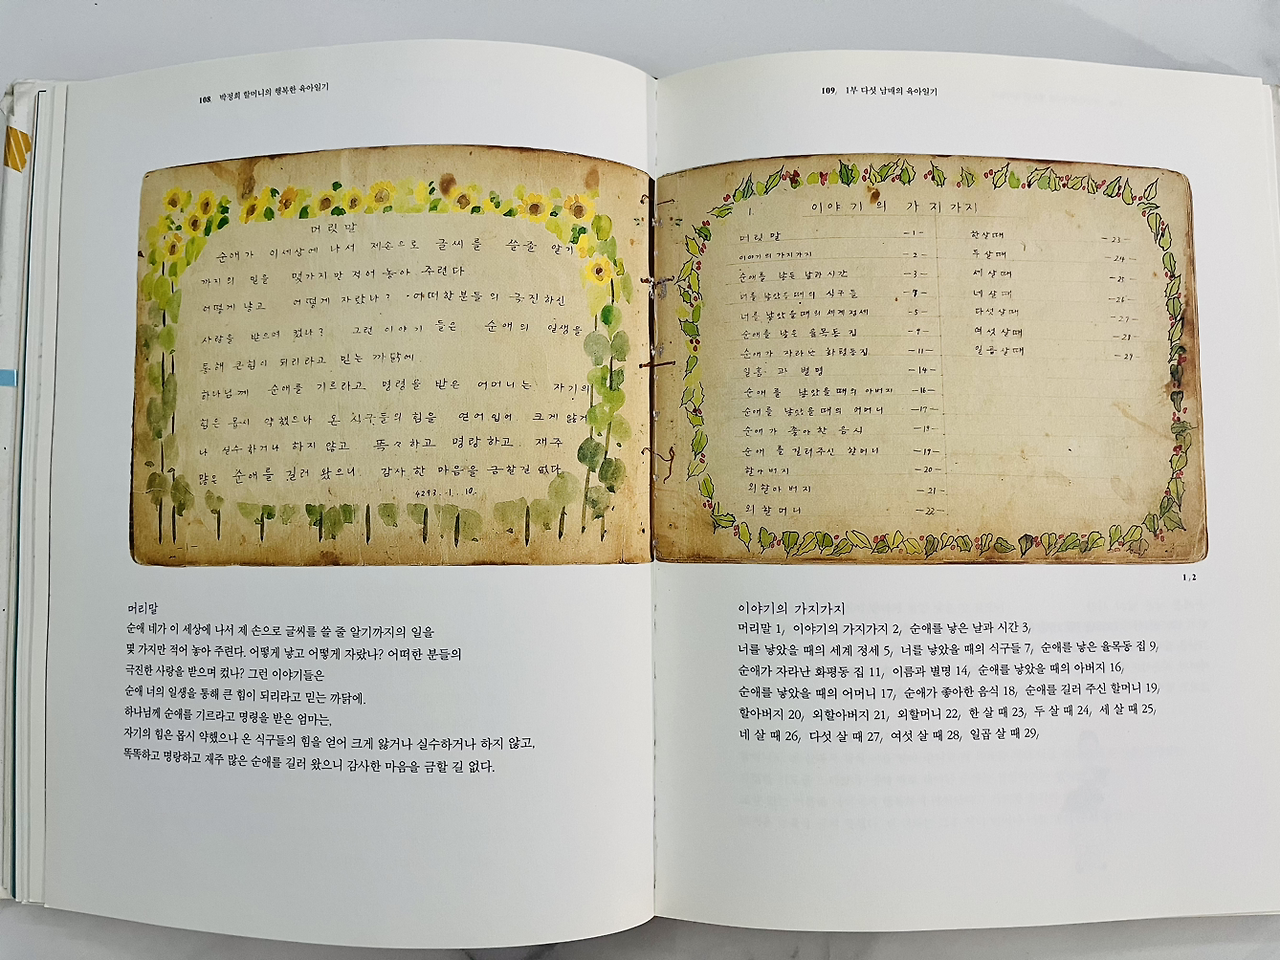 108 박정희 할머니의 행복한 육아일기
머릿말
순애가 이세상에 나서 제손으로 글씨를 쓸줄 알기
까지의 일을 몇가지만 적어 놓아 주련다
어떻게 낳고 어떻게 자랐나? 어떠한분들의 극진하신
사랑을 받으며 컸나? 그런 이야기 들은 순애의 일생을
통해 큰힘이 되리라고 믿는 까닭에.
하나님께 순애를 기르라고 명령을 받은 어머니는 자기의
힘은 몹시 약했으나 온 식구들의 힘을 얻어 크게 앓거
나 실수하거나 하지 않고 똑々하고 명랑하고 재주
많은 순애를 길러 왔으니 감사한 마음을 금할길 없다
4293.1.10.
머리말
순애 네가 이 세상에 나서 제 손으로 글씨를 쓸 줄 알기까지의 일을
몇 가지만 적어 놓아 주련다. 어떻게 낳고 어떻게 자랐나? 어떠한 분들의
극진한 사랑을 받으며 컸나? 그런 이야기들은
순애 너의 일생을 통해 큰 힘이 되리라고 믿는 까닭에.
하나님께 순애를 기르라고 명령을 받은 엄마는,
자기의 힘은 몹시 약했으나 온 식구들의 힘을 얻어 크게 앓거나 실수하거나 하지 않고,
똑똑하고 명랑하고 재주 많은 순애를 길러 왔으니 감사한 마음을 금할 길 없다.
109 1부 다섯 남매의 육아일기
1. 이야기의 가지가지
머릿말 -1-
이야기의 가지가지 -2-
순애를 낳은 날과 시간 -3-
너를 낳았을때의 식구들 -7-
너를 낳았을때의 세계정세 -5-
순애를 낳은 율목동 집 -9-
순애가 자라난 화평동집 -11-
일홈과 별명 -14-
순애를 낳았을때의 아버지 -16-
순애를 낳았을때의 어머니 -17-
순애가 좋아한 음식 -18-
순애를 길러주신 할머니 -19-
할아버지 -20-
외할아버지 -21-
외할머니 -22-
한살때 -23-
두살때 -24-
세살때 -25-
네살때 -26-
다섯살때 -27-
여섯살때 -28-
일곱살때 -29-
1, 2
이야기의 가지가지
머리말 1, 이야기의 가지가지 2, 순애를 낳은 날과 시간 3,
너를 낳았을 때의 세계 정세 5, 너를 낳았을 때의 식구들 7, 순애를 낳은 율목동 집 9,
순애가 자라난 화평동 집 11, 이름과 별명 14, 순애를 낳았을 때의 아버지 16,
순애를 낳았을 때의 어머니 17, 순애가 좋아한 음식 18, 순애를 길러 주신 할머니 19,
할아버지 20, 외할아버지 21, 외할머니 22, 한 살 때 23, 두 살 때 24, 세 살 때 25,
네 살 때 26, 다섯 살 때 27, 여섯 살 때 28, 일곱 살 때 29,